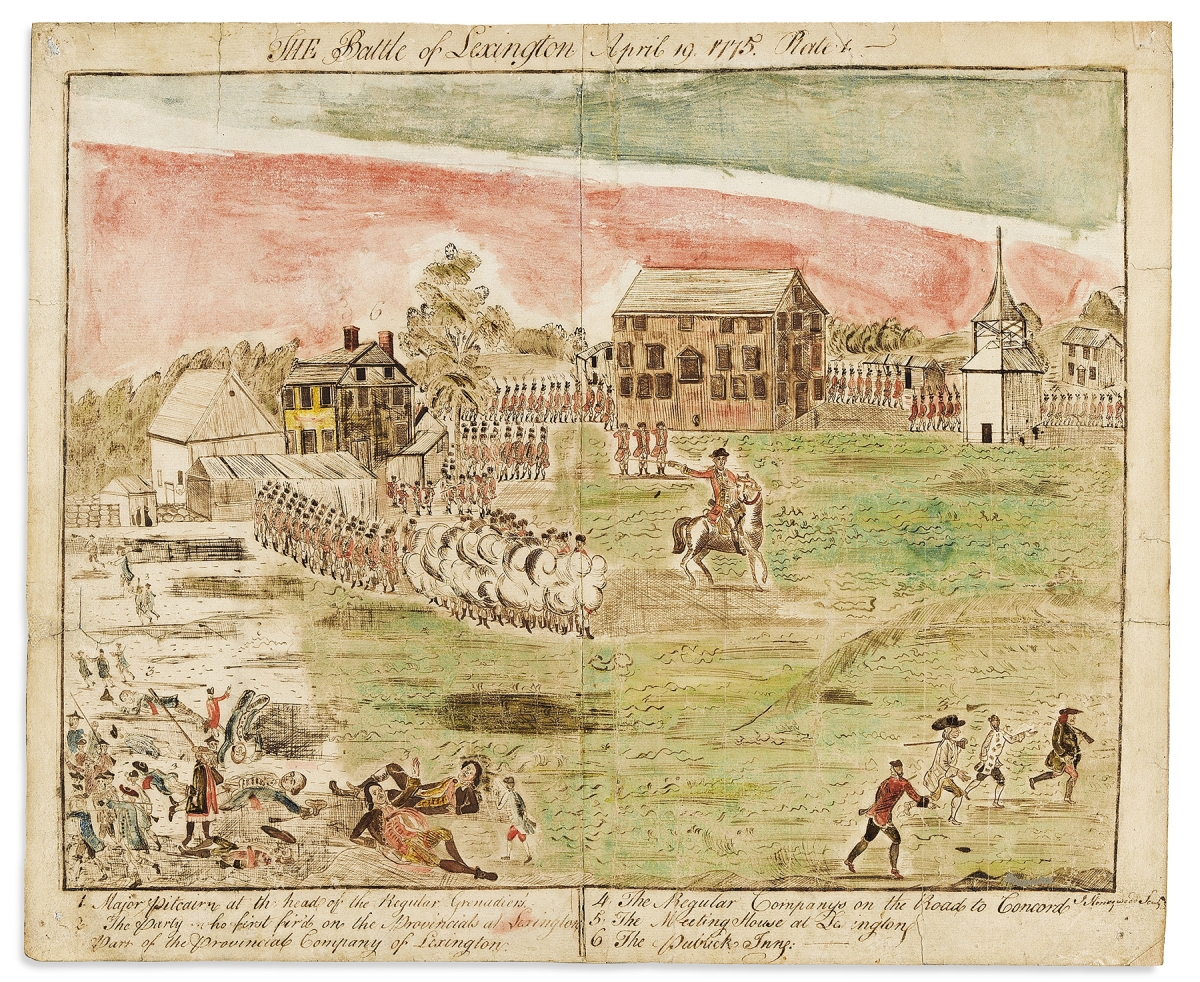 THE Battle of Lexington April 19. 1775. Plate 1.
6
1 Major Pitcairn at th head of the Regular Grenadiers
2 The Party who first fird on the Provincials at Lexington
Part of the Provincial Company of Lexington.
4 The Regular Companys on the Road to Concord
5 The Meeting House at Lexington
6 The Publick Inn.